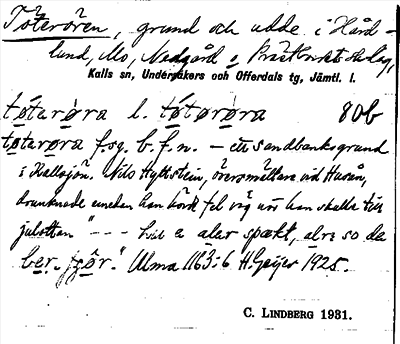 Töterören, grund och udde i Hård-
lund, Mo, Nedgård o Prästbordets skolag,
Kalls sn, Undersåkers och Offerdals tg, Jämtl. l.
tøtørøra l. tøtørøra 80b
tøtørøra f.sg. b.f.n. – ett sandbanksgrund
i Kallsjön. Nils Hyttstein, översmältare vid Husån,
drunknade medan han körde fel väg när han skulle till
julottan "--- hvił e alər spækt, alre so de
ber jør." Ulma 1163:6 H. Geijer 1925.
C. LINDBERG 1931.